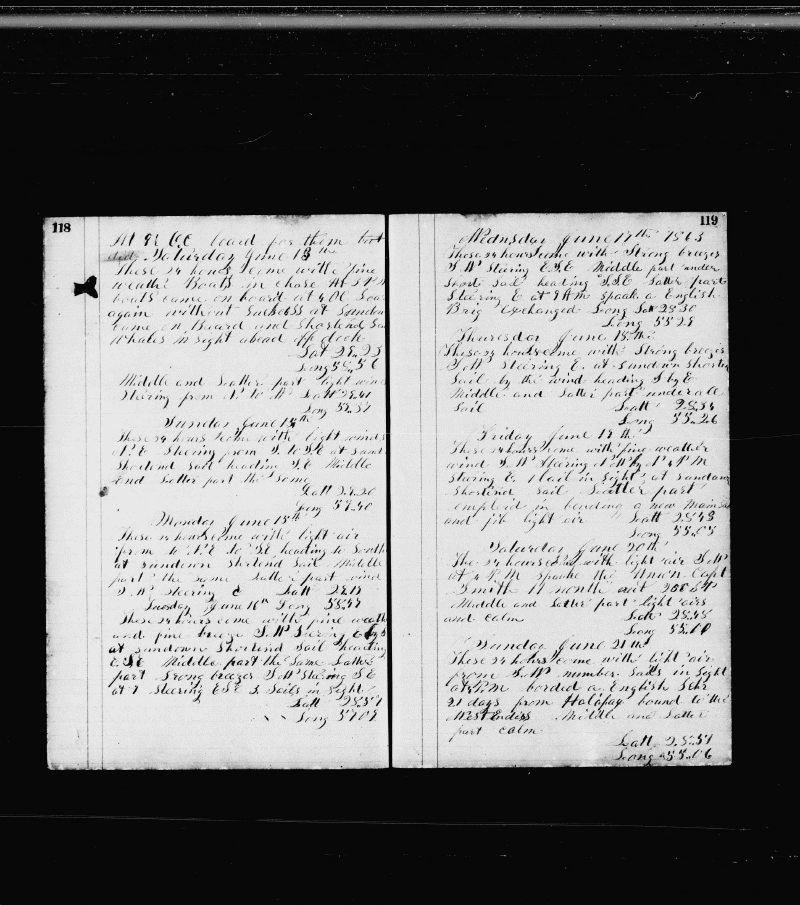 118
At 9½ OC board for them but
did Saturday June 13th
These 24 hours come with fine
weath Boats in chase At 3 P M
boats came on board at 4 OC
again without sucksess at Sundow
came on Board and Shortend Sa
Whales in sight abend off deck
Lat 28..23
Long 56..56
Middle and Latter part light wind
Steering from N to W Latt 28..41
Long 55..57
Sunday June 14th
These 24 hours come with light winds
N.E Steering from S. to S.E at Sund
Shortend Sail heading S.E Middle
and Latter part the Same
Latt 28..20
Long 57..40
Monday June 15th
These 24 hours come with light air
from to N.E to S.E. heading to South
at sundown Shortend Sail Middle
part the same Latter part wind
S.W Steering E Latt 28.18
Tuesday June 16th Long 58..47
These 24 hours come with fine weath
and fine breeze S.W Steering E
at sundown Shortend Sail heading
E.S.E Middle part the Same Latter
part Strong breezes S.W Steering S.E
at 7 Steering E.S.E 3 Sails in sight
Latt 28..57
Long 57 07
119
Wednsday June 17th 1863
These 24 hours come with Strong breezes
S.W Steering E.S.E Middle part under
Short Sail heading S.S.E Latter part
Steering E at 9 AM speak a English
Brig Exchanged Long Lat 28..30
Long 55 28
Thuresday June 18th
These 24 hours come with Strong breezes
S.W Steering E. at sundown Shorten
Sail by the wind heading S by E
Middle and Latter part under all
Sail Latt 28..34
Long 55..26
Friday June 19th
These 24 hours come with fine weather
wind S.W Steering N.W by N 4 P M
Steering E. 1 Sail in Sight, at sundown
Shortend Sail Latter part
employd in bending a new Mainsa
and jib light air Latt 28..43
Long 55..05
Saturday June 20th
The 24 hours with light air S.W
At 4 P.M spooke the Union Capt
Smith 14 month out 200 S W
Middle and Latter part light airs
and calm Latt 28..48
Long 55..00
Sunday June 21th
These 24 hours come with light air
from S.W number Sails in Sight
at 4 P.M borded a English Schr
21 days from Halafax bound to the
West Endiss Middle and Latter
part calm
Latt 28..51
Long 55..06